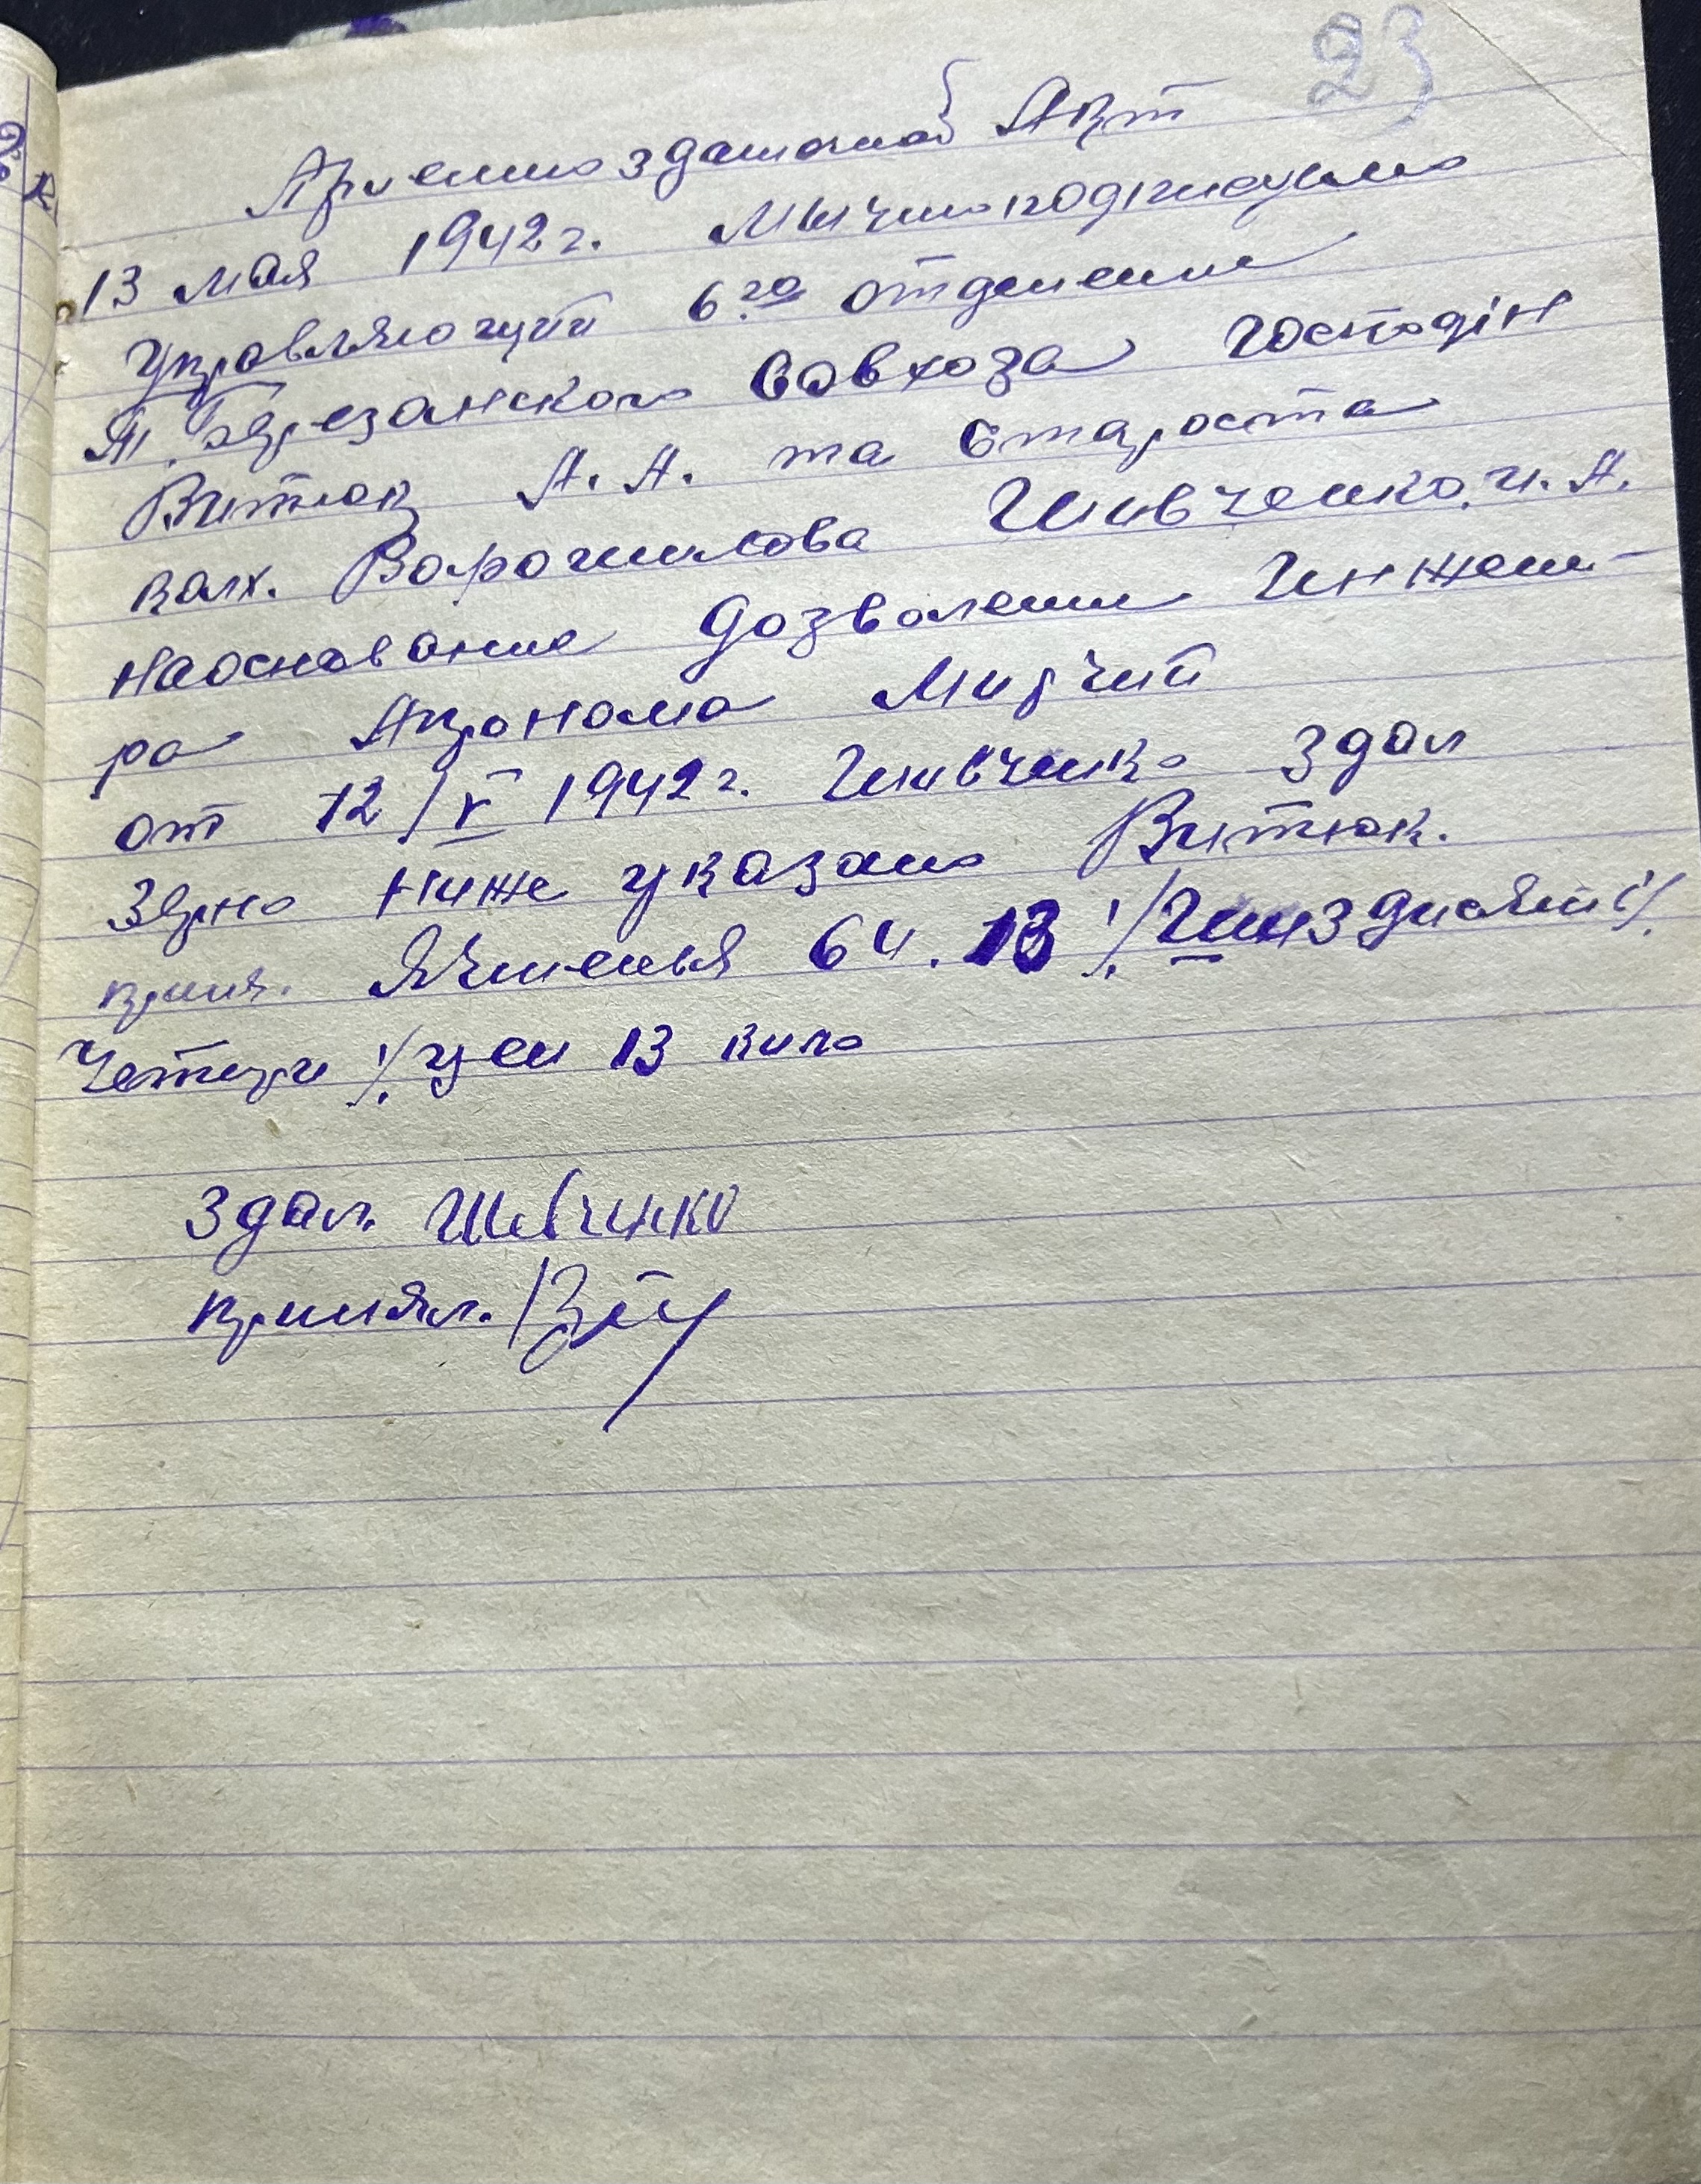 23
Приемно здаточной Акт
13 мая 1942 г. Мы нижоподписумо
Управляющий 6го отделение
Т. Березанского Совхоза Господін
Витюк А. А. та Староста
колх. Ворошилова Шивченко. И. А.
На основание дозволение Инжени-
ра Агронома
от 12/V 1942 г. Шивченко Здал
Зерно ниже указано Витюк.
прин. Ячменья 64. 13 /Шиздисят/
Четыри /. цен 13 кило
Здал. Шевченко
принял.